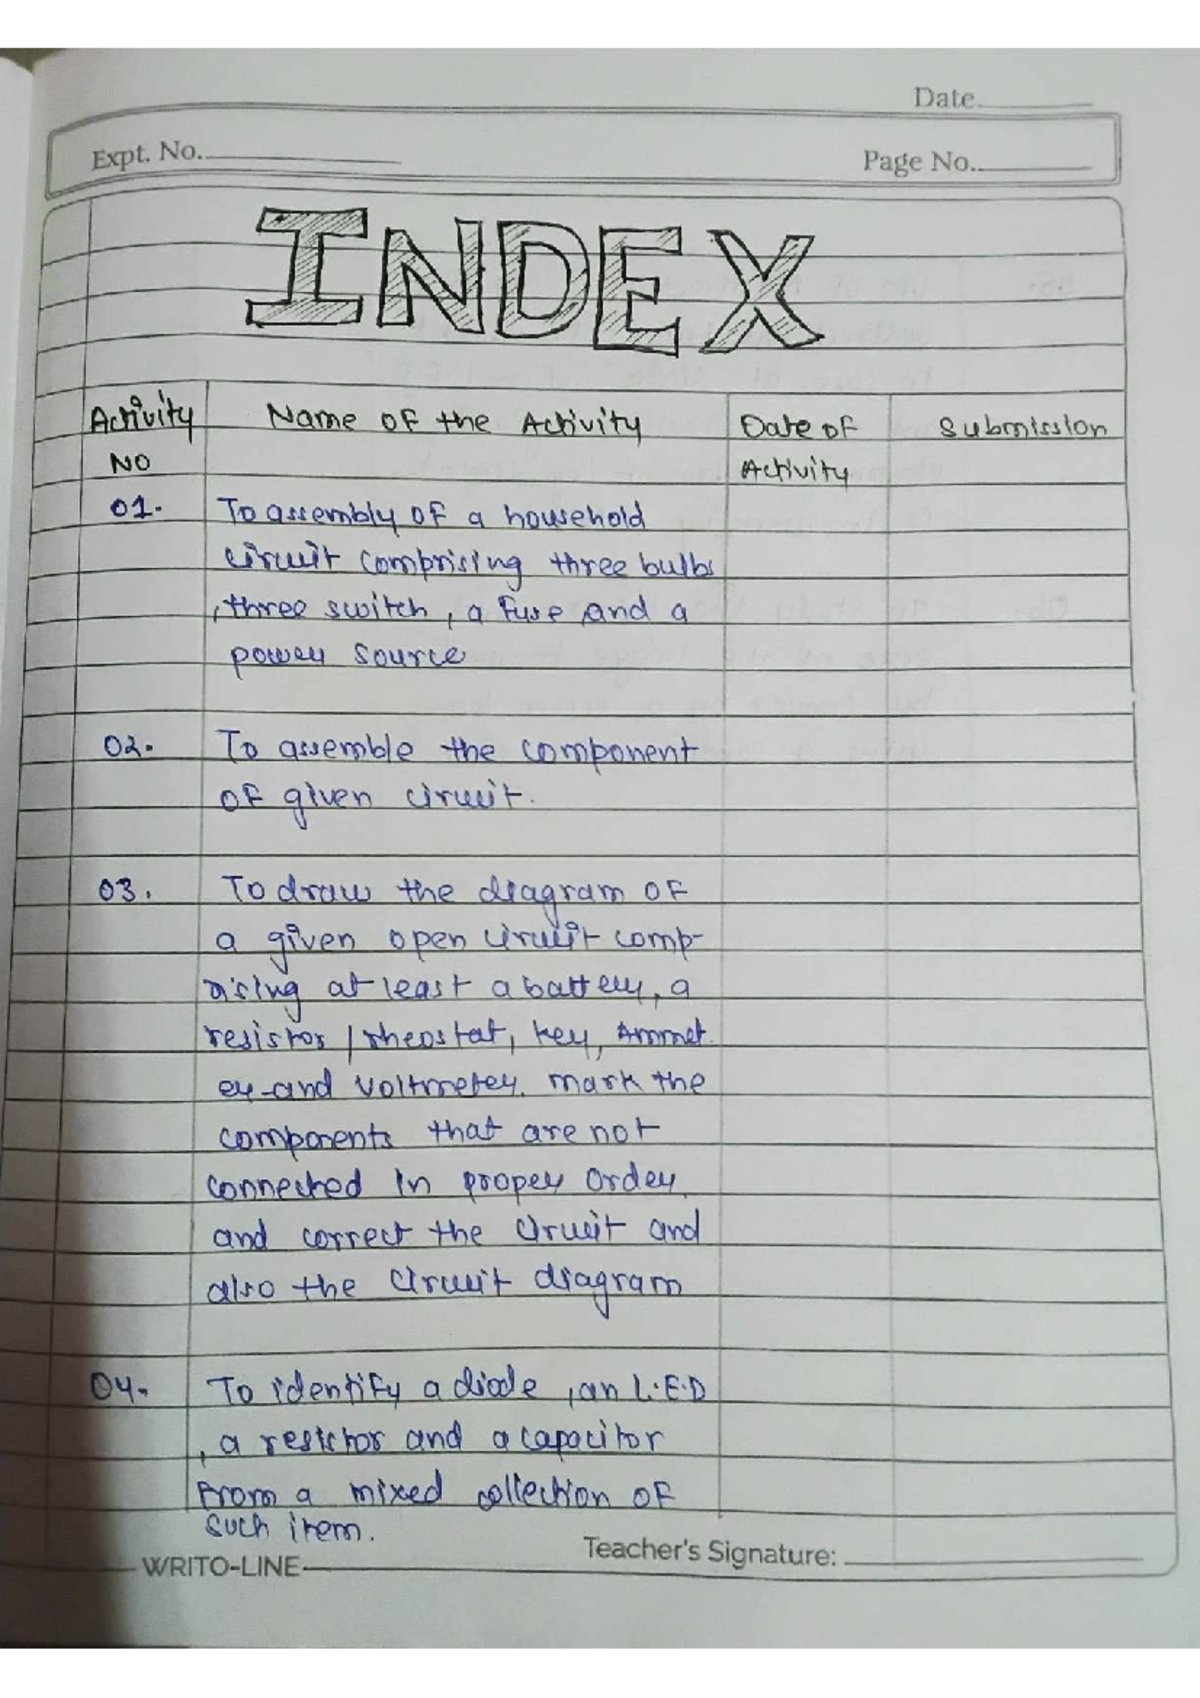 Date.
Expt. No.
Page No.
INDEX
Activity Name of the Activity Date of Submission
No Activity
01. To assembly of a household
circuit comprising three bulbs
, three switch, a fuse and a
power source
02. To assemble the component
of given circuit.
03. To draw the diagram of
a given open circuit comp-
rising at least a battery, a
resistor / rheostat, key, Ammet
er and voltmeter. mark the
components that are not
connected in proper order
and correct the circuit and
also the circuit diagram
04. To identify a diode, an L.E.D
, a resistor and a capacitor
from a mixed collection of
such item.
Teacher's Signature:
WRITO-LINE